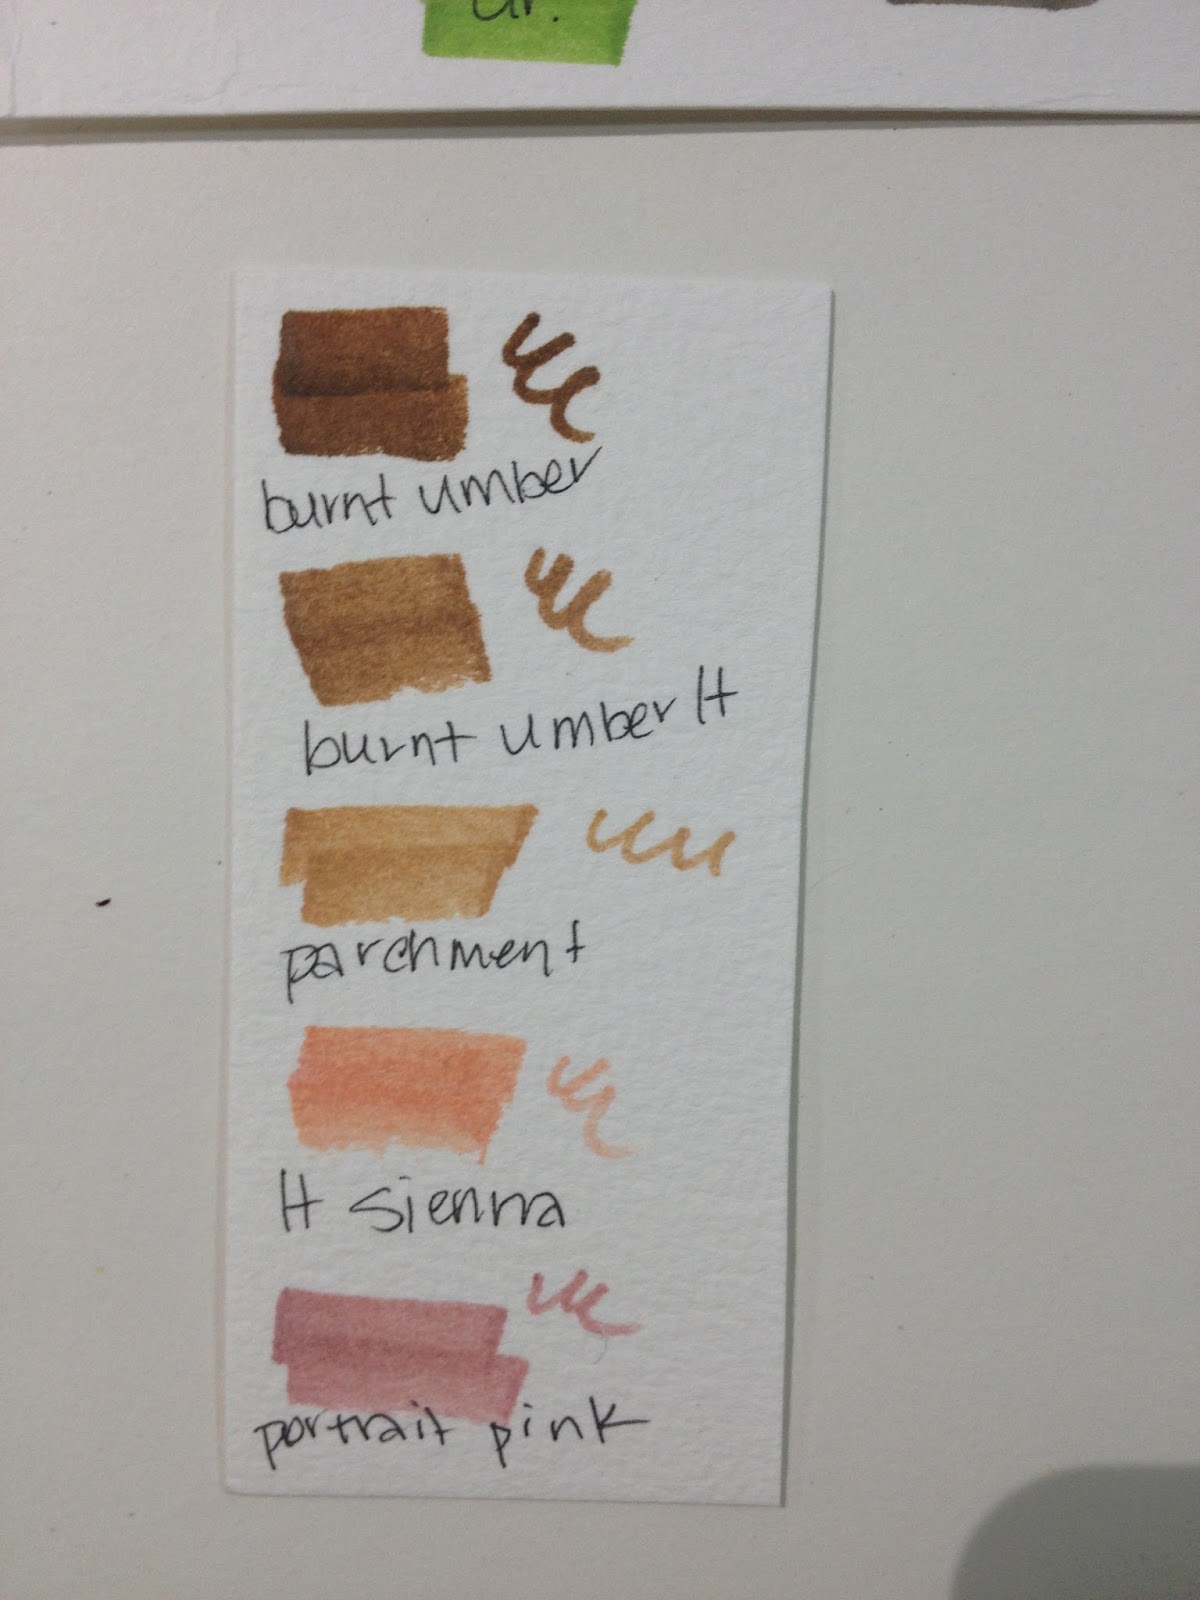 burnt umber
burnt umber lt
parchment
lt sienna
portrait pink